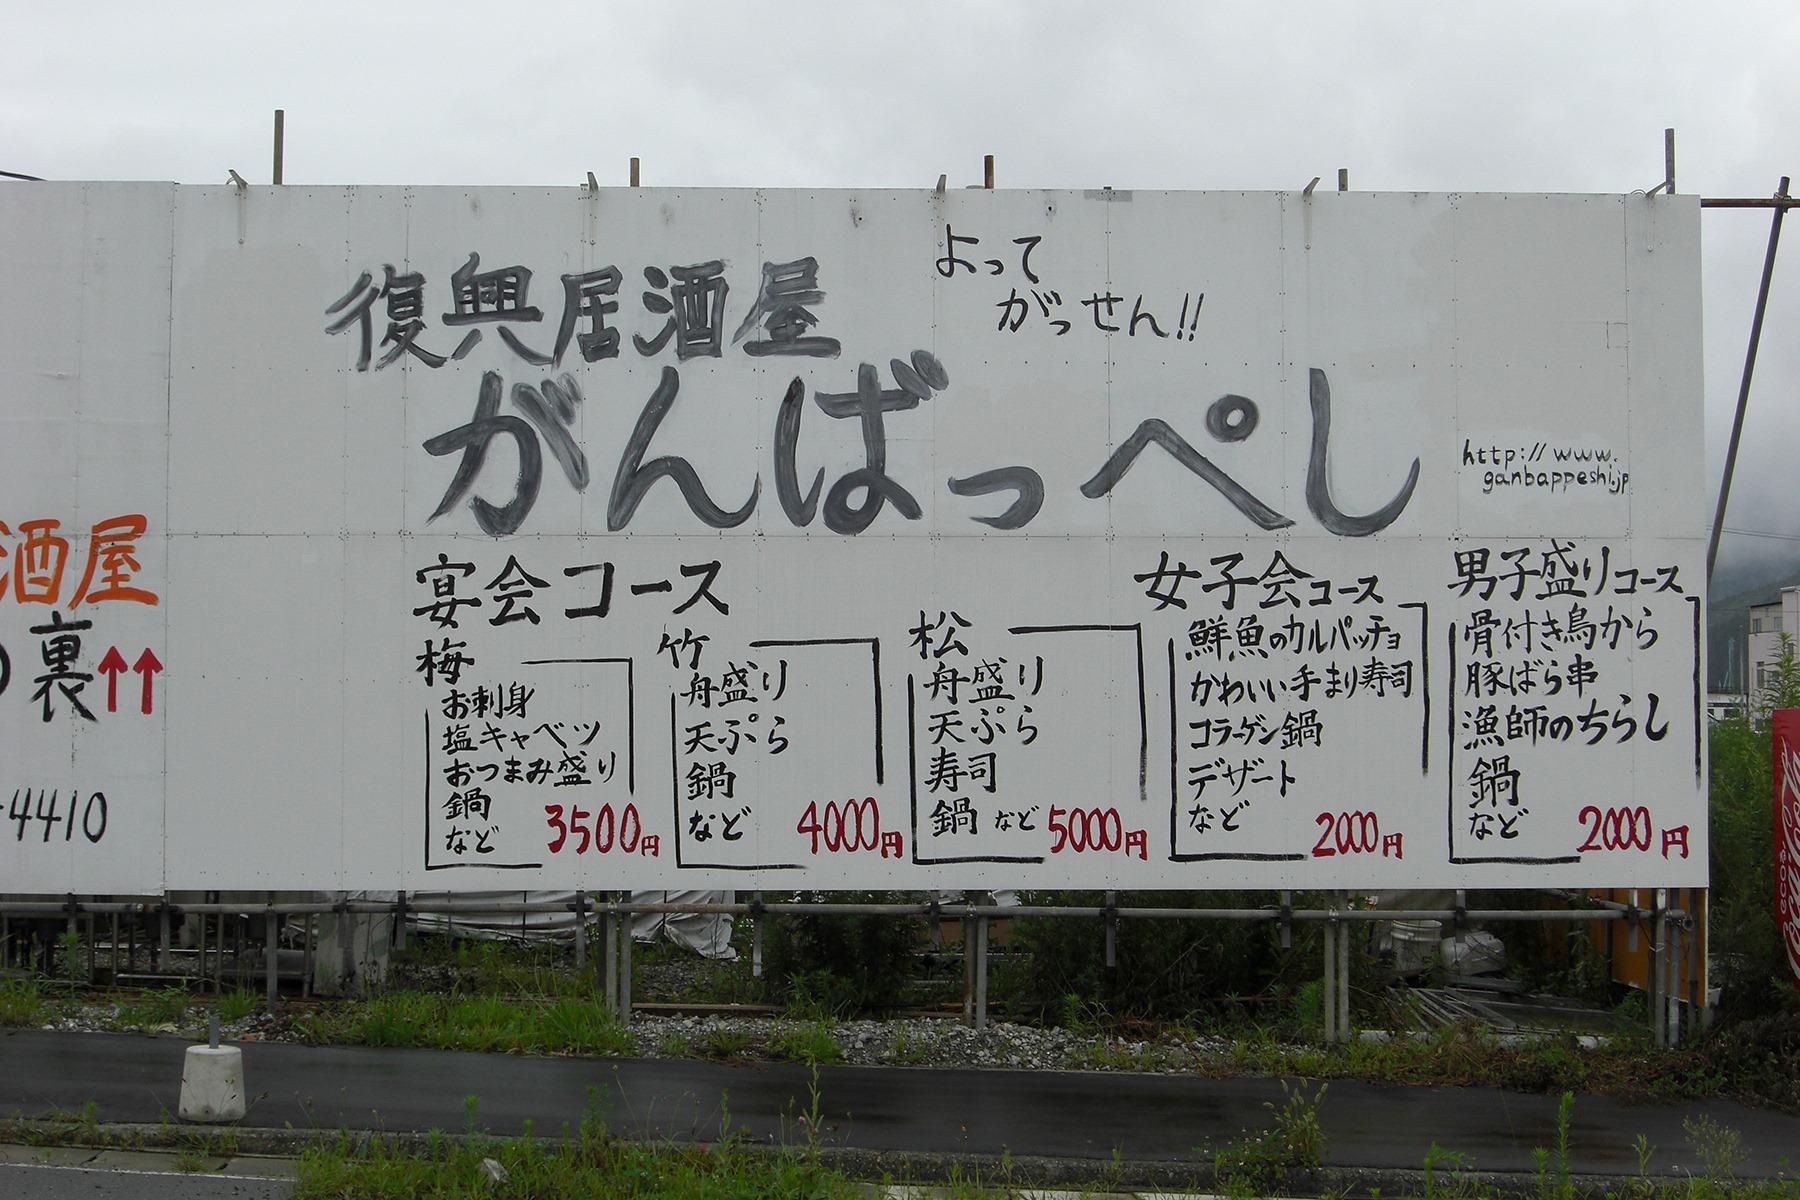 復興居酒屋
よって
がっせん!!
がんばっぺし
http://www.
ganbappeshi.jp
酒屋
裏↑↑
-4410
宴会コース
梅
お刺身
塩キャベツ
おつまみ盛り
鍋
など
3500円
竹
舟盛り
天ぷら
鍋
など
4000円
松
舟盛り
天ぷら
寿司
鍋 など
5000円
女子会コース
鮮魚のカルパッチョ
かわいい手まり寿司
コラーゲン鍋
デザート
など
2000円
男子盛りコース
骨付き鳥から
豚ばら串
漁師のちらし
鍋
など
2000円
Coca-Cola